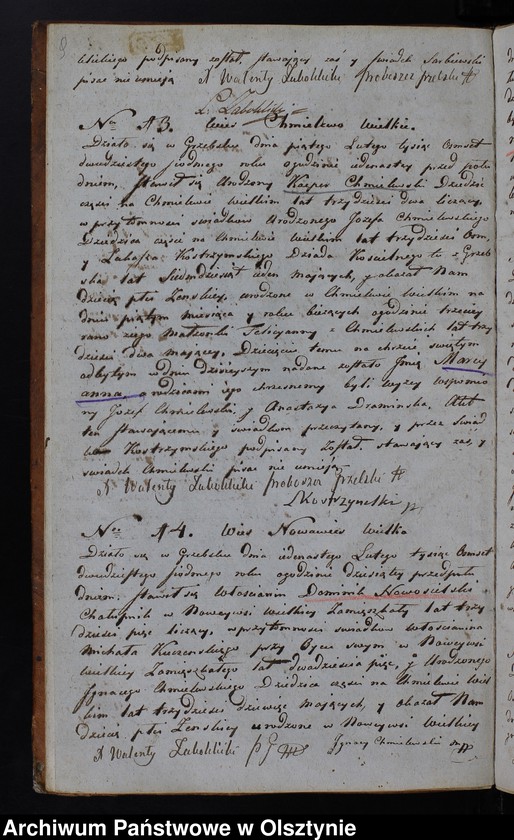 9
podpisany został, stawaiący zaś y świadek Sarbiewski
pisać nie umieią X Walenty Zaboklicki proboszcz Grzebski
No. 13. Wieś Chmielewo Wielkie.
Działo się w Grzebsku dnia piątego Lutego tysiąc Ośmset
dwudziestego siodmego roku o godzinie iedenastey przed połu
dniem, stawił się Urodzony Kacper Chmielewski Dziedzic
części na Chmielewie Wielkim lat trzydzieści dwa liczący,
w przytomności świadków Urodzonego Jozefa Chmielewskiego
Dziedzica części na Chmielewie wielkim lat trzydzieści Ośm,
y Łukasza Kostrzyńskiego Dziada Kościelnego tu z Grzeb
ska lat Siedmdziesiąt ieden maiących, y okazał Nam
dziecię płci Zenskiey, urodzone w Chmielewie Wielkim na
dniu piątym miesiąca y roku bieżących o godzinie trzeciey
rano z iego Małżonki Felicyanny z Chmielewskich lat trzy
dzieści dwa maiącey, Dziecięciu temu na chrzcie świętym
odbytym w dniu dzisieyszym nadane zostało Imię Marcy
anna, a rodzicami iego chrzesnemi byli wyżey wspomnio
ny Jozef Chmielewski, y Anastazya Dramińska. Akt
ten stawaiącemu y świadkom przeczytany, y przez świad
ka Kostrzyńskiego podpisany Został, stawaiący zaś y
świadek Chmielewski pisać nie umieią
X Walenty Zaboklicki proboszcz Grzebski
Łkostrzynski
No. 14. Wieś Nowawieś Wielka
Działo się w Grzebsku dnia iedenastego Lutego tysiąc Ośmset
dwudziestego siodmego roku o godzinie dziesiątey przed połu
dniem, stawił się Włościanin Dominik Nowosielski
Chałupnik w Nowey wsi Wielkiey Zamięszkały lat trzy
dzieści pięć liczący, w przytomności świadków Włościanina
Michała Kuczenskiego przy Oycu swym w Nowey wsi
wielkiey Zamięszkałego lat dwadzieścia pięć, y Urodzonego
Jgnacego Chmielewskiego Dziedzica części na Chmielewie Wiel
kim lat trzydzieści dziewięć maiących, y okazał Nam
dziecię płci Zenskiey urodzone w Nowey wsi Wielkiey
X Walenty Zaboklicki p G Jgnacy Chmielewski
Archiwum Państwowe w Olsztynie